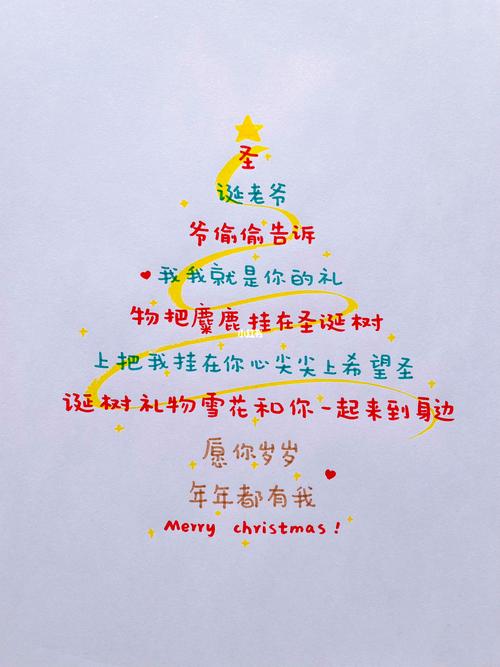 圣
诞老爷
爷偷偷告诉
我我就是你的礼
物把麋鹿挂在圣诞树
上把我挂在你心尖尖上希望圣
诞树礼物雪花和你一起来到身边
愿你岁岁
年年都有我
Merry christmas!
小红书